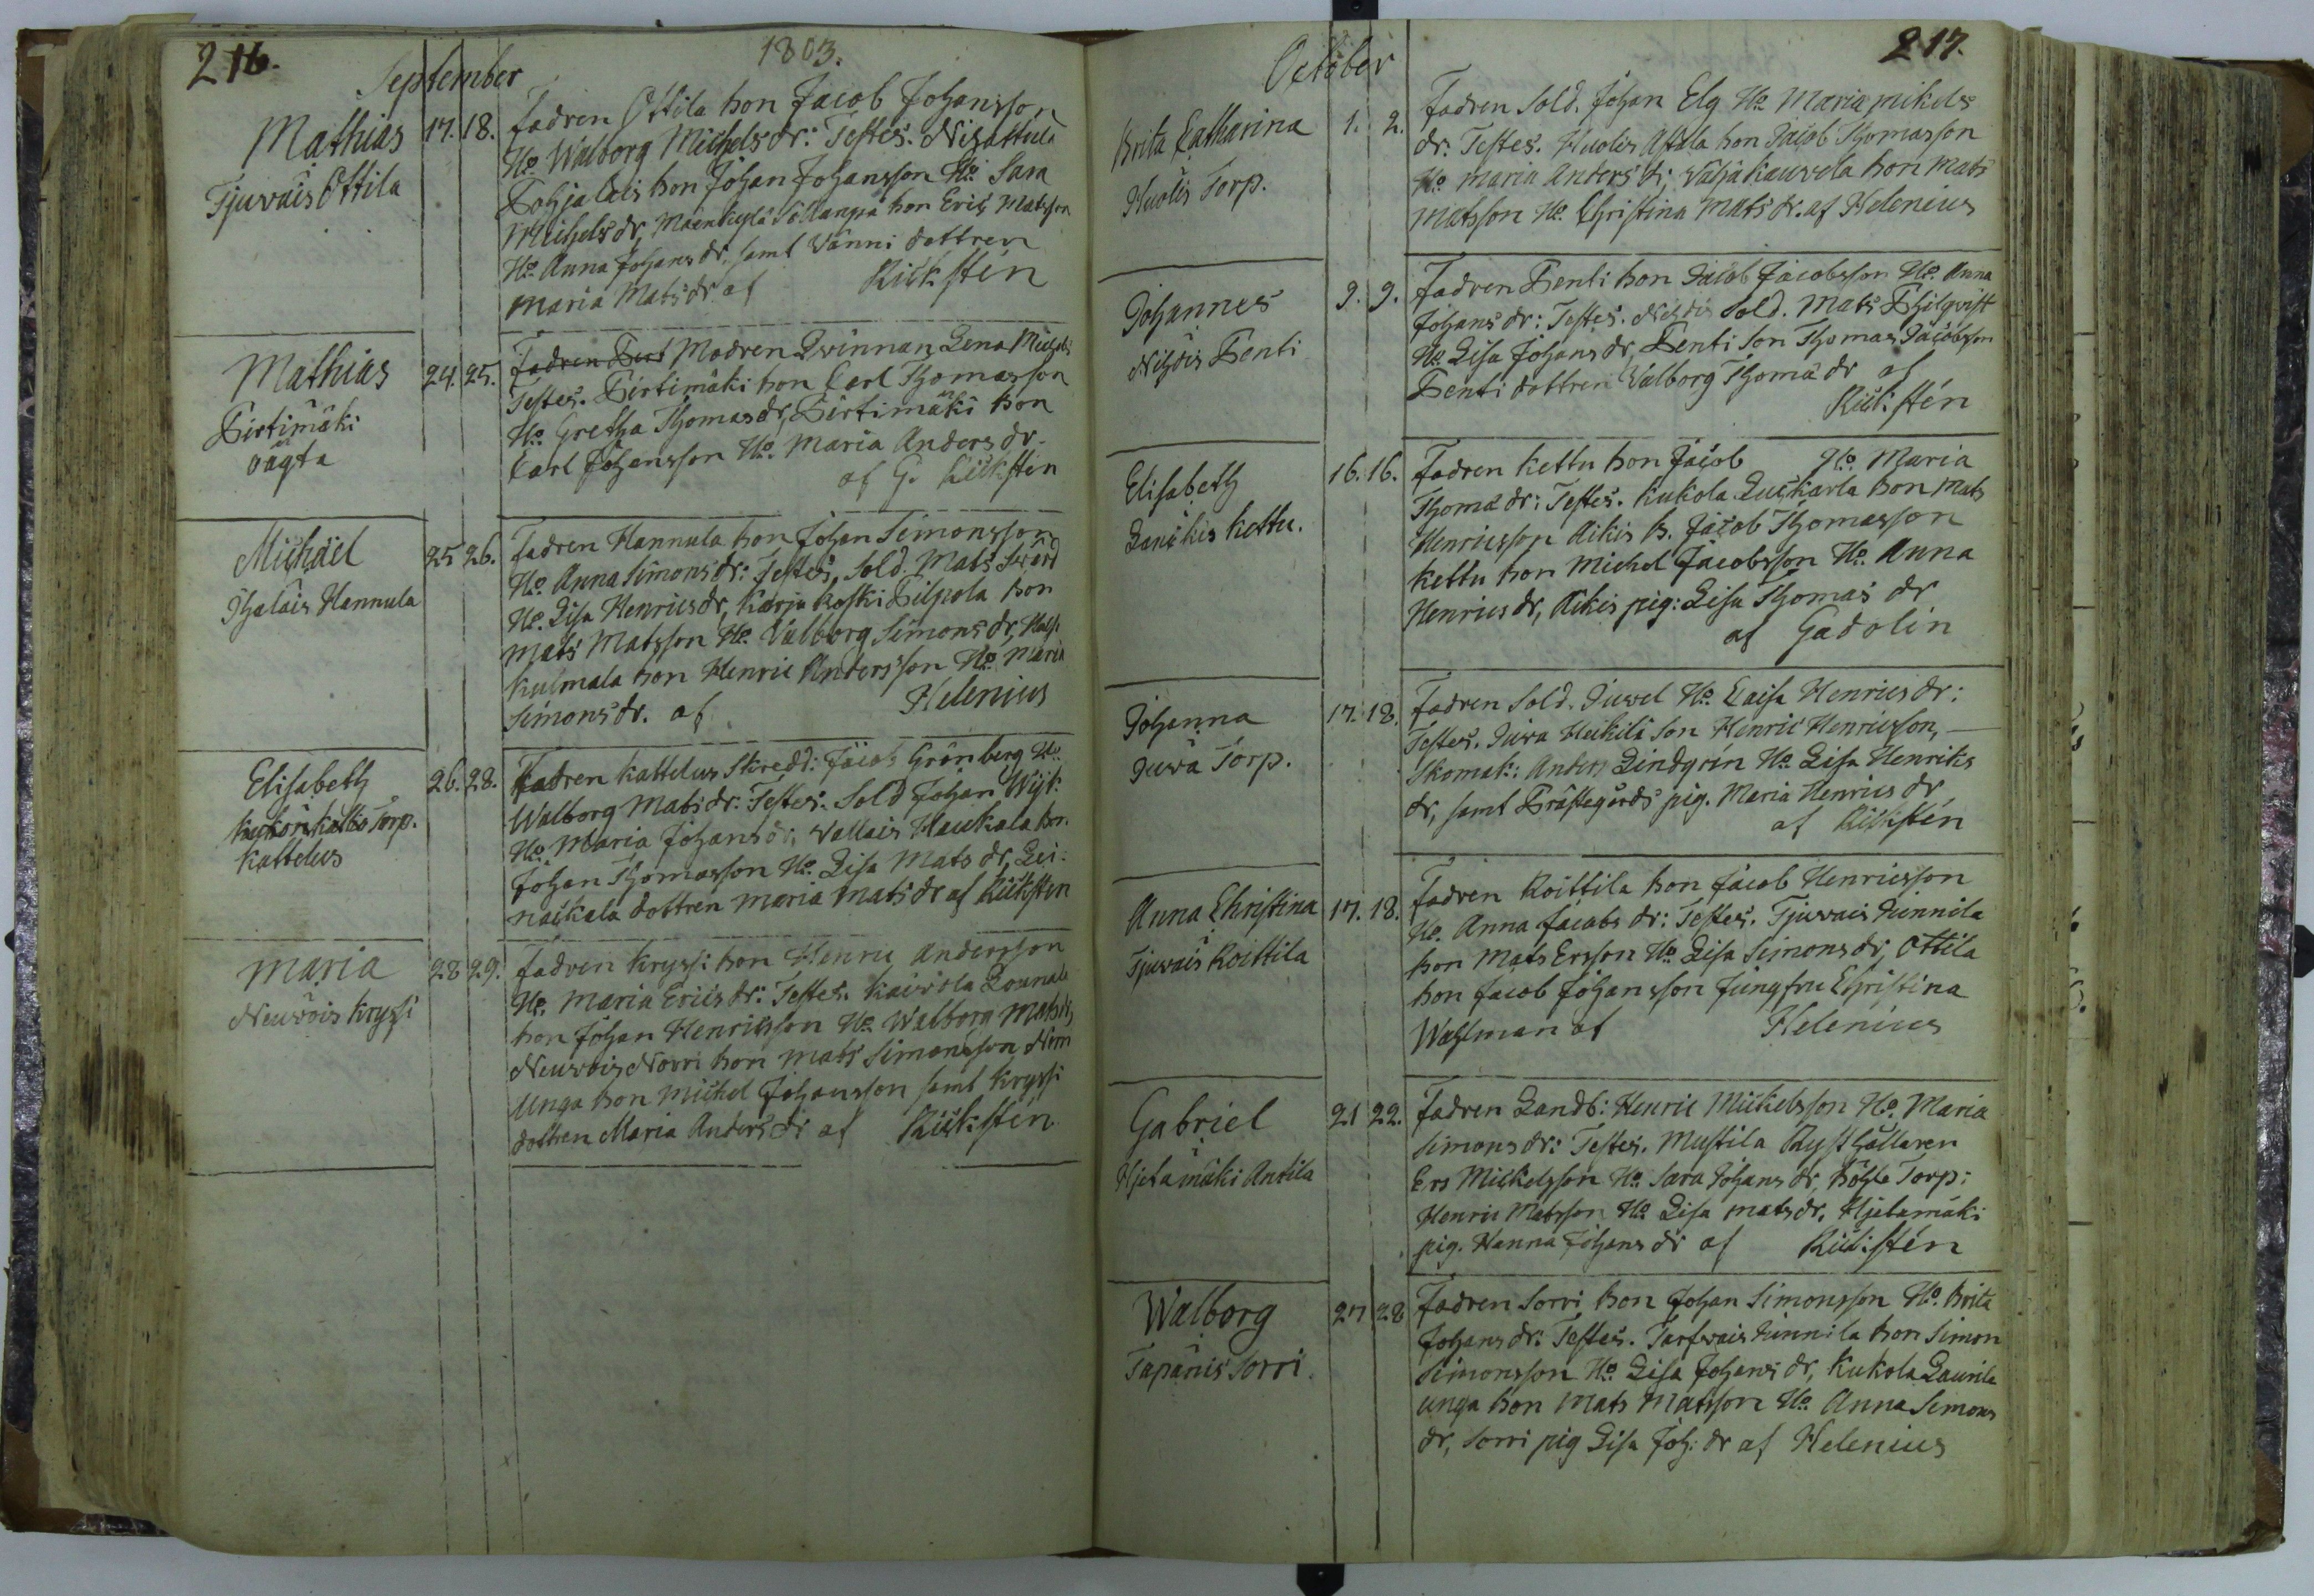 216.
1803.
September
Mathias
Tjuvais Ottila
17. 18.
Fadren Ottila bon Jacob Johansson
Ho. Walborg Michelsdr: Testes. Nisattula
Pohjalais bon Johan Johansson Ho: Sara
Michelsdr, Mäenkylä bon Eric Matsson
Ho. Anna Johansdr, samt Vänni dottren
Maria Matsdr af Rückstén
Mathias
Pirtimäki
oägta
24. 25.
Fadren Modren Qvinnan Lena Michels
Testes. Pirtimäki bon Carl Thomasson
Ho. Gretha Thomasdr, Pirtimäki bon
Carl Johansson Ho. Maria Andersdr.
af G. Rückstén
Michael
Ihalais Hannula
25 26.
Fadren Hannula bon Johan Simonsson
Ho. Anna Simonsdr: Testes, Sold. Mats Swärd
Ho. Lisa Henricsdr, Karja koski Pilpola bon
Mats Matsson Ho. Valborg Simonsdr,
Kulmala bon Henric Andersson Ho. Maria
Simonsdr. af Helenius
Elisabeth
Torp.
Kattelus
26. 28.
Fadren Kattelus Skredd: Jacob Grönberg Ho.
Walborg Matsdr: Testes. Sold Johan Wijk
Ho. Maria Johansdr, Vallais Haukala bon
Johan Thomasson Ho. Lisa Matsdr, Lei-
naickala dottren Maria Matsdr af Rückstén
Maria
Neuvois Kryssi
28 29.
Fadren Kryssi bon Henric Andersson
Ho. Maria Ericsdr: Testes. Kaivola
bon Johan Henricsson Ho. Walborg Matsdr,
Neuvois Norri bon Mats Simonsson
Unga bon Michel Johansson samt Kryssi
dottren Maria Andersdr af Rückstén
217.
October
Brita Catharina
Huolis Torp.
1. 2.
Fadren Sold. Johan Elg Ho. Maria Mikels
dr: Testes. Huolis Attila bon Jacob Thomasson
Ho. Maria Andersdr, Vähä kauvola bon Mats
Matsson Ho. Christina Matsdr. af Helenius
Johannes
Nihois Penti
9. 9.
Fadren Penti bon Jacob Jacobsson Ho. Anna
Johansdr: Testes. Sold. Mats
Ho Lisa Johansdr, Penti Son Thomas Jacobsson
Penti dottren Valborg Thomædr af
Rückstén
Elisabeth
Kettu.
16. 16.
Fadren Kettu bon Jacob Ho. Maria
Thomædr: Testes. Kukola Luckarla bon Mats
Henricsson Aikis b. Jacob Thomasson
Kettu bon Michel Jacobsson Ho. Anna
Henricsdr, Aikis pig: Lisa Thomasdr
af Gadolin
Johanna
Juva Torp.
17. 18.
Fadren Sold. Juvel Ho. Caisa Henricsdr:
Testes. Juva Heikilä Son Henric Henricsson,
Skomak: Anders Lindgrén Ho. Lisa Henriks
dr, samt Prästegårds pig. Maria Henricsdr
af Rückstén
Anna Christina
Tjuvais Koittila
17. 18.
Fadren Koittila bon Jacob Henricsson
Ho. Anna Jacobsdr: Testes. Tjuvais Junnila
bon Mats Ersson Ho. Lisa Simonsdr, Ottila
bon Jacob Johansson Jungfru Christina
Wahlman af Helenius
Gabriel
Hjetamäki Antila
21 22.
Fadren Landb: Henric Mickelsson Ho. Maria
Simonsdr: Testes. Mustila Rysthållaren
Ers Mickelsson Ho. Sara Johansdr, Torp:
Henric Matsson Ho. Lisa Matsdr, Hjetamäki
pig. Hanna Johansdr af Rückstén
Walborg
Tapanis Sorri
27 28
Fadren Sorri bon Johan Simonsson Ho. Brita
Johansdr: Testes. Tarfvais Junnila bon Simon
Simonsson Ho. Lisa Johansdr, Kukola Laurila
unga bon Mats Matsson Ho. Anna Simons
dr, Sorri pig Lisa Joh: dr af Helenius